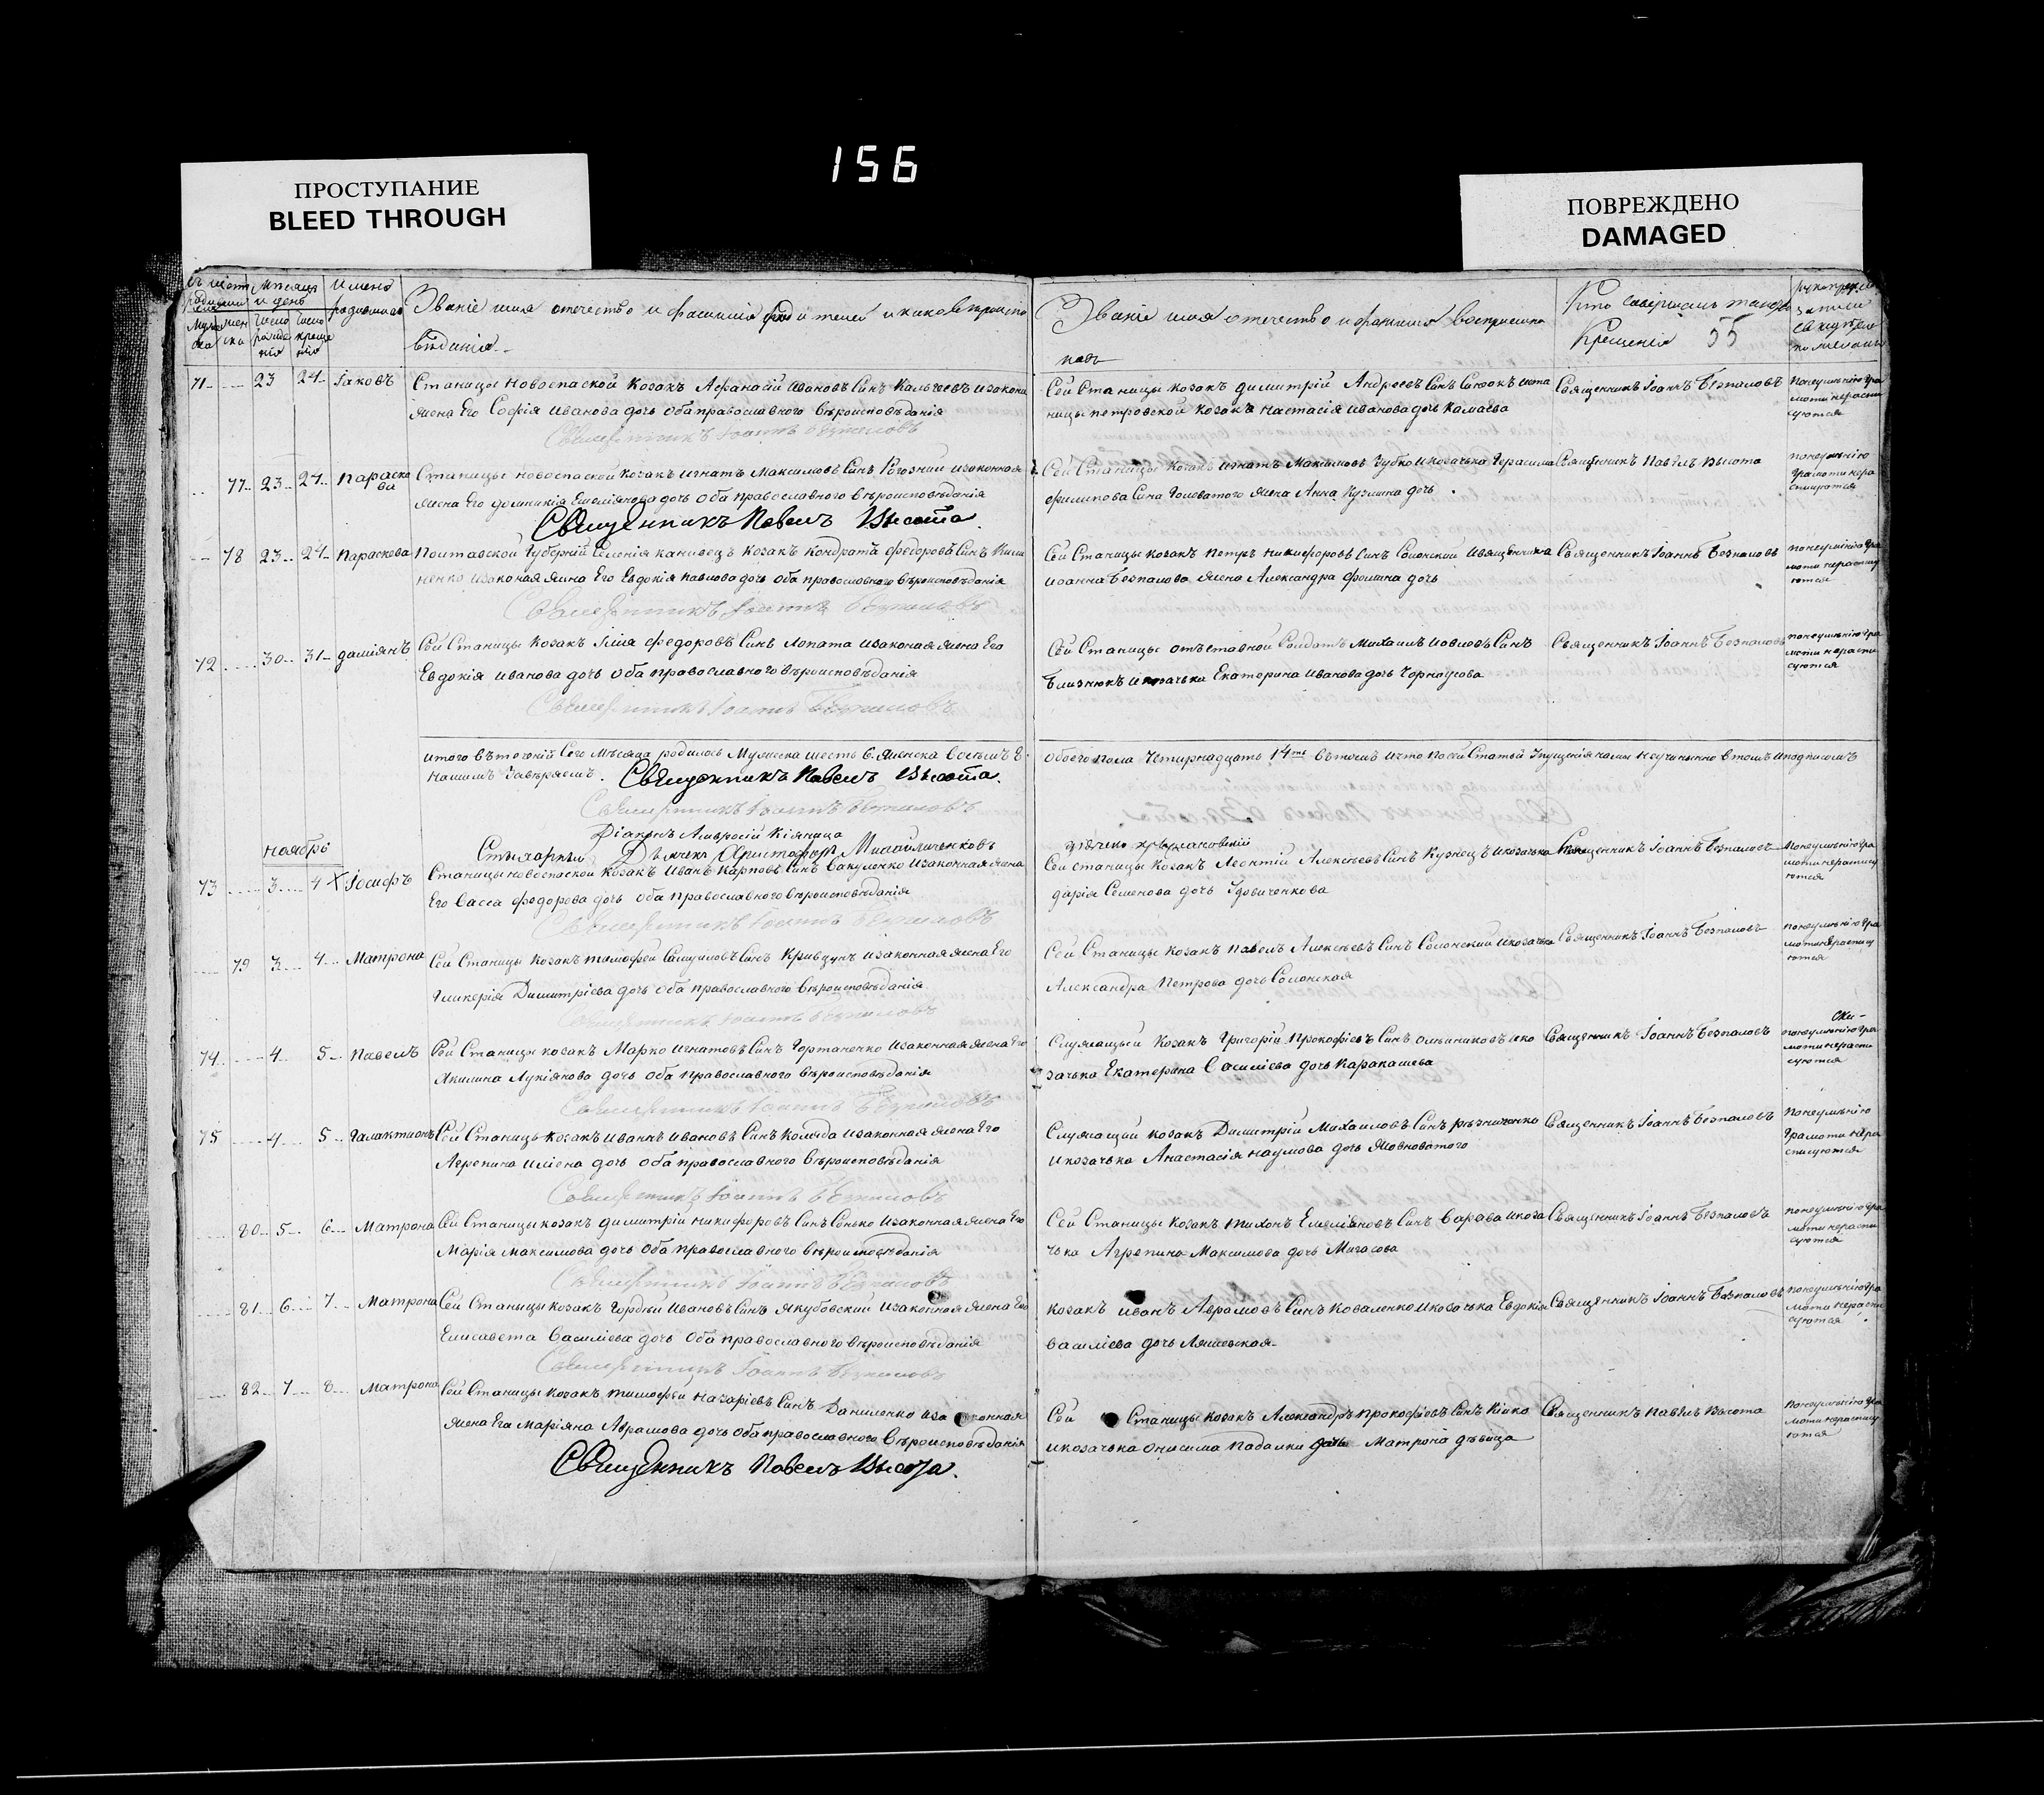 156
ПРОСТУПАНИЕ
BLEED THROUGH
ПОВРЕЖДЕНО
DAMAGED
и день
Имена
родившихся
Званіе имя отечество и фамилія родителей и какова вѣроиспо
вѣданія
Званіе имя отечество и фамилія воспріемни
ковъ
Кто совершалъ таинство
Крещенія 55
71 23 24 Іаковъ
Станицы Новоспаской козакъ Афанасій Ивановъ синъ Кальчевъ изакона
жена Его Софія Иванова дочь оба православного вѣроисповѣданія
Священникъ Іоаннъ Безпаловъ
Сей Станицы козакъ Димитрій Андреевъ синъ
ницы Петровской козачка Настасія Иванова дочь Камаева
Священникъ Іоаннъ Безпаловъ
понеумѣнію гра
моти нераспи
суются
77 23 24 Параске
ва
Станицы Новоспаской козакъ Игнатъ Максимовъ синъ Рогозний изаконная
жена Его Домникія Емеліянова дочь оба православного вѣроисповѣданія
Священникъ Павелъ Высота.
Сей Станицы козакъ Игнатъ Максимовъ Чубко икозачька Герасима
Филипова сина Головатого жена Анна Кузмина дочь
Священникъ Павелъ Высота
понеумѣнію
грамоти нера
списуются
78 23 24 Параскева
Полтавской губерній селенія Канивецъ козакъ Кондратъ Федоровъ синъ
ненко изаконая жена Его Евдокія Павлова дочь оба православного вѣроисповѣданія
Священникъ Іоаннъ Безпаловъ
Сей Станицы козакъ Петръ Никифоровъ синъ Солонской исвященика
Иоанна Безпалова жена Александра Фомина дочь
Священникъ Іоаннъ Безпаловъ
понеумѣнію гра
моти нераспису
ются
72 30 31 Даміянъ
Сей Станицы козакъ Ілія Федоровъ синъ Лопата изаконая жена Его
Евдокія Иванова дочь оба православного вѣроисповѣданія
Священникъ Іоаннъ Безпаловъ
Сей Станицы отъставной солдатъ Михаилъ Иовловъ синъ
Близнюкъ икозачька Екатерина Иванова дочь Чорноусова
Священникъ Іоаннъ Безпаловъ
понеумѣнію гра
моти нераспи
суются
итого вътеченій сего мѣсяца родилось мужеска шесть 6. женска восьмъ 8
обоего пола четирнадцать 14ть вътомъ
Священникъ Павелъ Высота.
Священникъ Іоаннъ Безпаловъ
Діаконъ Амвросій Кіяница
Ноябрь
73 3 4 Іосифъ
Станицы Новоспаской козакъ Иванъ Карповъ синъ Вакуленко изаконная жена
Его Васса Федорова дочь оба православного вѣроисповѣданія
Священникъ Іоаннъ Безпаловъ
Сей станицы козакъ Леонтій Алексѣевъ синъ Кузнецъ икозачька
Дарія Семенова дочь Удовиченкова
Священникъ Іоаннъ Безпаловъ
понеумѣнію гра
моти нераспису
ются
79 3 4 Матрона
Сей Станицы козакъ Тимофей Самуиловъ синъ Кривцунъ изаконная жена Его
Гликерія Димитріева дочь оба православного вѣроисповѣданія
Священникъ Іоаннъ Безпаловъ
Сей Станицы козакъ Павелъ Алексѣевъ синъ Солонский икозачька
Александра Петрова дочь Солонская
Священникъ Іоаннъ Безпаловъ
понеумѣнію гра
моти нераспису
ются
74 4 5 Павелъ
Сей Станицы козакъ Марко Игнатовъ синъ Гортаненко изаконная жена Его
Акилина Лукіянова дочь оба православного вѣроисповѣданія
Священникъ Іоаннъ Безпаловъ
Служащый козакъ Григорій Прокофіевъ синъ Ольниковъ ико
зачька Екатерина Василіева дочь Каракашева
Священникъ Іоаннъ Безпаловъ
понеумѣнію гра
моти нераспи
суются
75 4 5 Галактионъ
Сей Станицы козакъ Иваннъ Ивановъ синъ Коляда изаконная жена Его
Агрепина Иліена дочь оба православного вѣроисповѣданія
Священникъ Іоаннъ Безпаловъ
Служащий козакъ Димитрій Михаиловъ синъ Рѣзниченко
икозачька Анастасія Наумова дочь Жовноватого
Священникъ Іоаннъ Безпаловъ
понеумѣнію
грамоти нера
списуются
80 5 6 Матрона
Сей Станицы козакъ Димитрій Никифоровъ синъ Сенько изаконная жена Его
Марія Максимова дочь оба православного вѣроисповѣданія
Священникъ Іоаннъ Безпаловъ
Сей Станицы козакъ Тихонъ Емеліяновъ синъ Варава икоза
чька Агрепина Максимова дочь Магасова
Священникъ Іоаннъ Безпаловъ
понеумѣнію гра
моти нераспи
суются
81 6 7 Матрона
Сей Станицы козакъ Гордѣй Ивановъ синъ Якубовский изаконная жена Его
Елисавета Василіева дочь оба православного вѣроисповѣданія
Священникъ Іоаннъ Безпаловъ
козакъ Иванъ Аврамовъ синъ Коваленко икозачька Евдокія
Василіева дочь Ляшевская
Священникъ Іоаннъ Безпаловъ
понеумѣнію гра
моти нераспи
суются
82 7 8 Матрона
Сей Станицы козакъ Тимофей Назаріевъ синъ Даниленко изаконная
жена Его Маріяна Аврамова дочь оба православного вѣроисповѣданія
Священникъ Павелъ Высота.
Сей Станицы козакъ Александръ Прокофіевъ синъ Кійко
икозачька Онисима Падалки дочь Матрона дѣвица
Священникъ Павелъ Высота
понеумѣнію гра
моти нераспису
ются